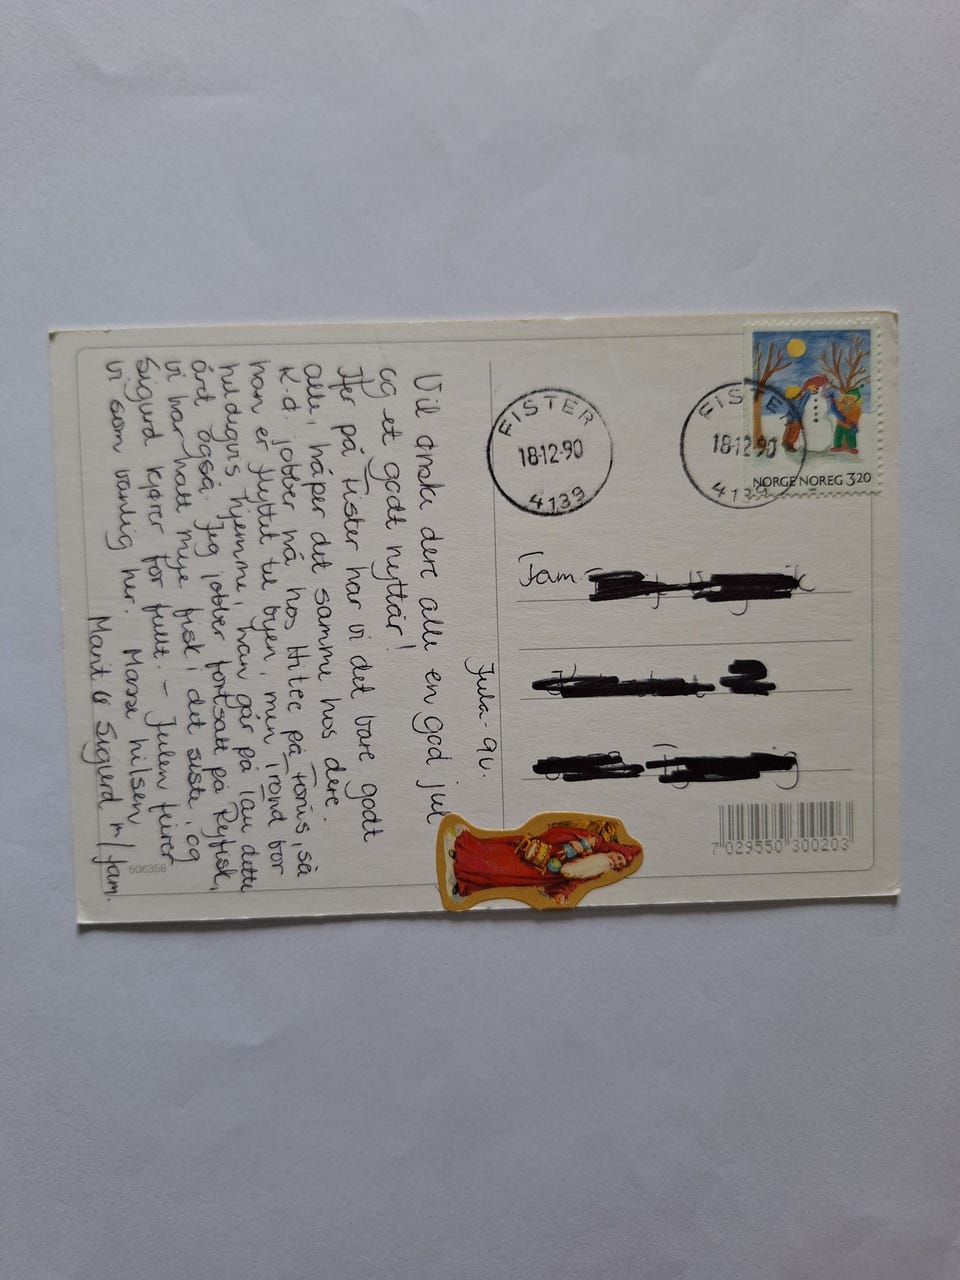 Jula-90.
Vil ønske dere alle en god jul
og et godt nyttår!
Her på Fister har vi det bare godt
alle, håper det samme hos dere.
K.d. jobber nå hos Hitec på Forus, så
han er flyttet til byen, min Trond bor
heldigvis hjemme, han går på lau dette
året også. Jeg jobber fortsatt på Ryfisk,
vi har hatt mye fisk i det siste, og
Sigurd kjører for fullt. - Julen feirer
vi som vanlig her. Masse hilsen
Marit & Sigurd m/fam.
506358
FISTER
18-12-90
4139
FISTE
18-12-90
4139
NORGE NOREG 3.20
Fam.
7 029550 300203